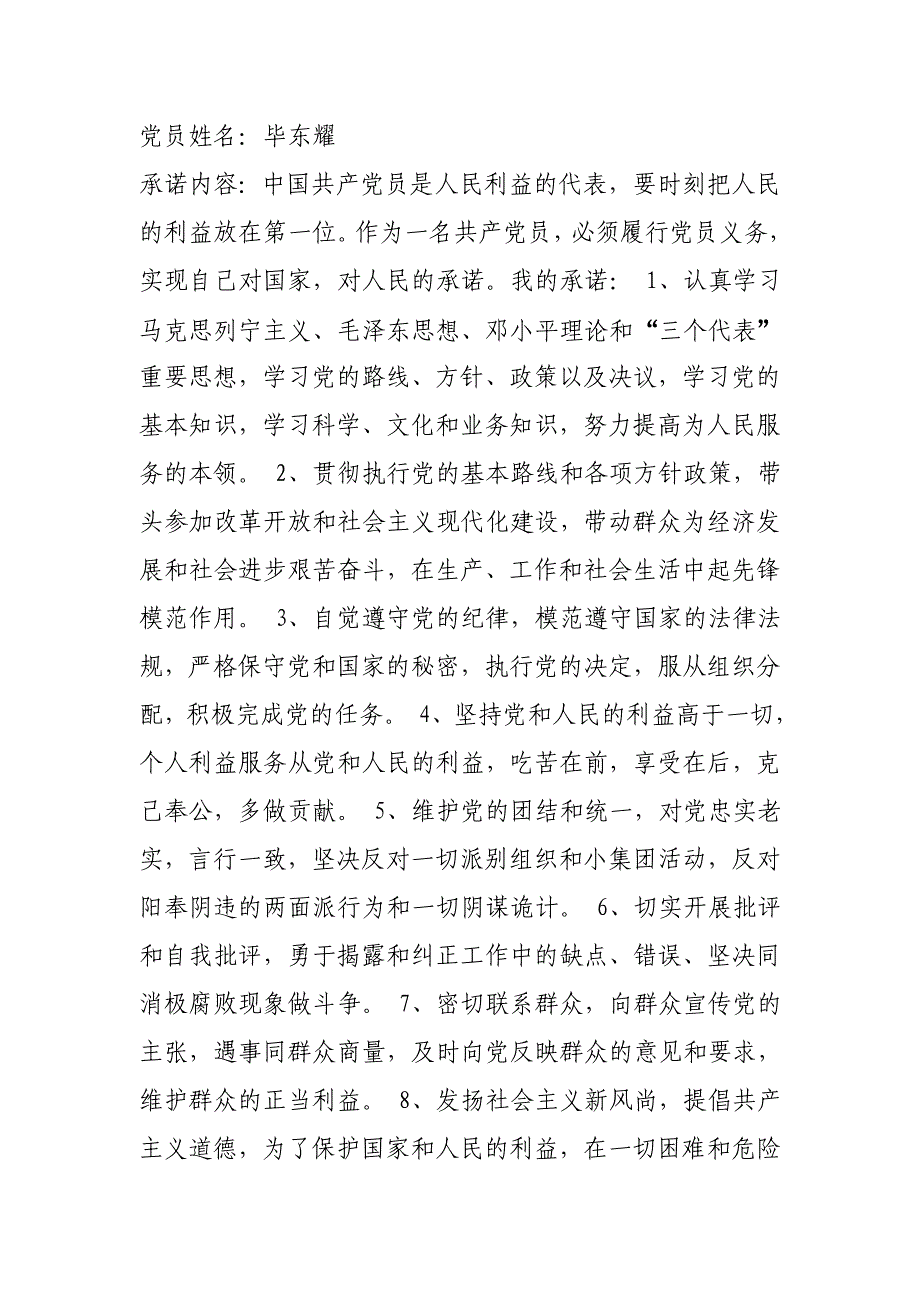 党员姓名：毕东耀
承诺内容：中国共产党员是人民利益的代表，要时刻把人民
的利益放在第一位。作为一名共产党员，必须履行党员义务，
实现自己对国家，对人民的承诺。我的承诺： 1、认真学习
马克思列宁主义、毛泽东思想、邓小平理论和“三个代表”
重要思想，学习党的路线、方针、政策以及决议，学习党的
基本知识，学习科学、文化和业务知识，努力提高为人民服
务的本领。 2、贯彻执行党的基本路线和各项方针政策，带
头参加改革开放和社会主义现代化建设，带动群众为经济发
展和社会进步艰苦奋斗，在生产、工作和社会生活中起先锋
模范作用。 3、自觉遵守党的纪律，模范遵守国家的法律法
规，严格保守党和国家的秘密，执行党的决定，服从组织分
配，积极完成党的任务。 4、坚持党和人民的利益高于一切，
个人利益服务从党和人民的利益，吃苦在前，享受在后，克
己奉公，多做贡献。 5、维护党的团结和统一，对党忠实老
实，言行一致，坚决反对一切派别组织和小集团活动，反对
阳奉阴违的两面派行为和一切阴谋诡计。 6、切实开展批评
和自我批评，勇于揭露和纠正工作中的缺点、错误、坚决同
消极腐败现象做斗争。 7、密切联系群众，向群众宣传党的
主张，遇事同群众商量，及时向党反映群众的意见和要求，
维护群众的正当利益。 8、发扬社会主义新风尚，提倡共产
主义道德，为了保护国家和人民的利益，在一切困难和危险